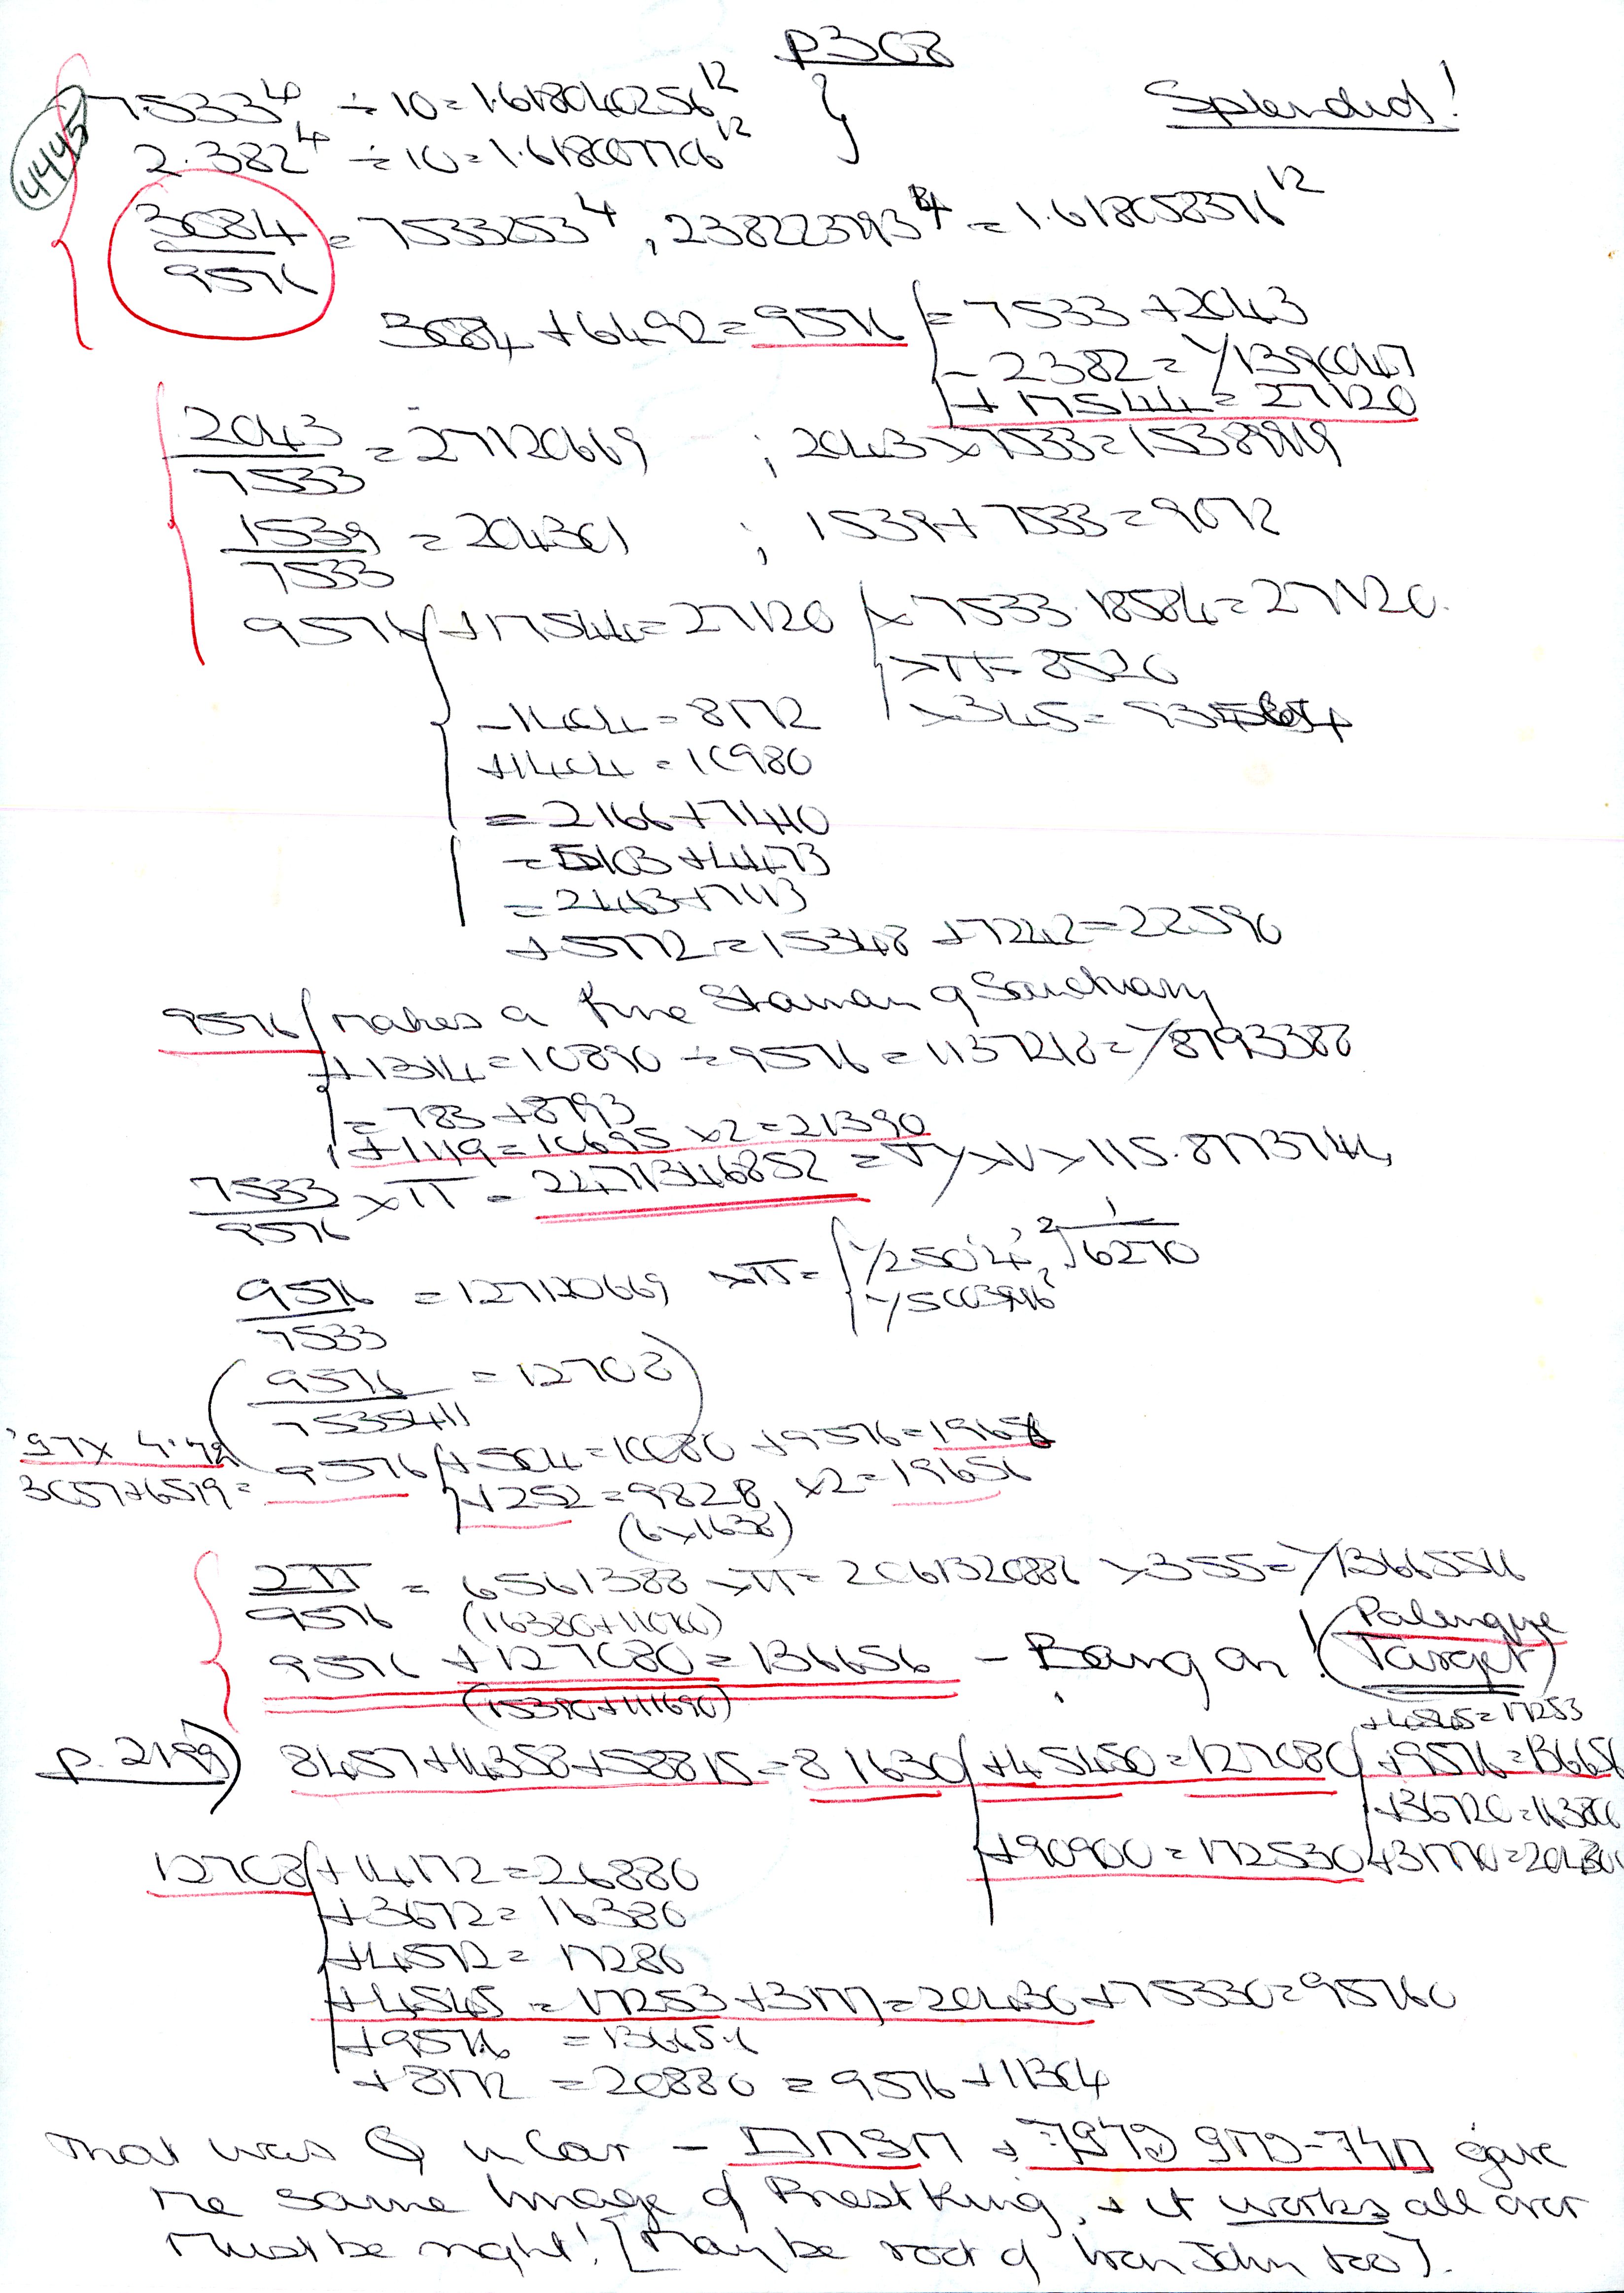 P308
Splendid!
4445
7.533⁴ ÷ 10 = 1.618040256¹²
2.382⁴ ÷ 10 = 1.618007706¹²
3084/9576 = 7533253⁴, 238223793⁴ = 1.618058376¹²
3084 + 6492 = 9576 = 7533 + 2043
- 2382 =
+ 17544 = 27120
2043/7533 = 27120669 ; 2043 x 7533 = 15389919
1539/7533 = 204301 ; 1539 + 7533 = 9072
9576 + 17544 = 27120 x 7533.18584 = 27120.
x π = 8520
x 345 =
- 1404 = 8172
+ 1404 = 10980
= 2166 + 7410
= 5103 + 4473
= 2463 + 7113
+ 5772 = 15348 + 7242 = 22590
9576 makes a fine Shaman of Sanctuary
+ 1314 = 10890 ÷ 9576 = 1137218 = 1/8793388
= 783 + 8793
+ 1119 = 10695 x 2 = 21390
7533/9576 x π = 2471346852 = x 115.8773744
9576/7533 = 127120669 x π = 1/2504², ²√1/6270
(9576/7535411 = 12708)
'97 x 4.72
3057 + 6519 = 9576 + 504 = 10080 + 9576 = 19656
+ 252 = 9828, x 2 = 19656
(6 x 1638)
2π/9576 = 6561388 x π = 2061320886 x 355 = 1/13665546
9576 + 127080 = 136656 - Bang on! (Palenque
Target)
(15390 + 111690)
+ 4545 = 17253
p. 2199) 8457 + 14358 + 58815 = 81630 + 45450 = 127080 + 9576 = 136656
+ 36720 = 163800
+ 90900 = 172530 + 31770 = 204300
12708 + 14172 = 26880
+ 3672 = 16380
+ 4572 = 17280
+ 4545 = 17253 + 3177 = 20430 + 75330 = 95760
+ 9576 = 136656
+ 8172 = 20880 = 9576 + 11304
That was in Car - gave
me same Image of Priest King, + it works all over
Must be right! [May be root of Iron John too].